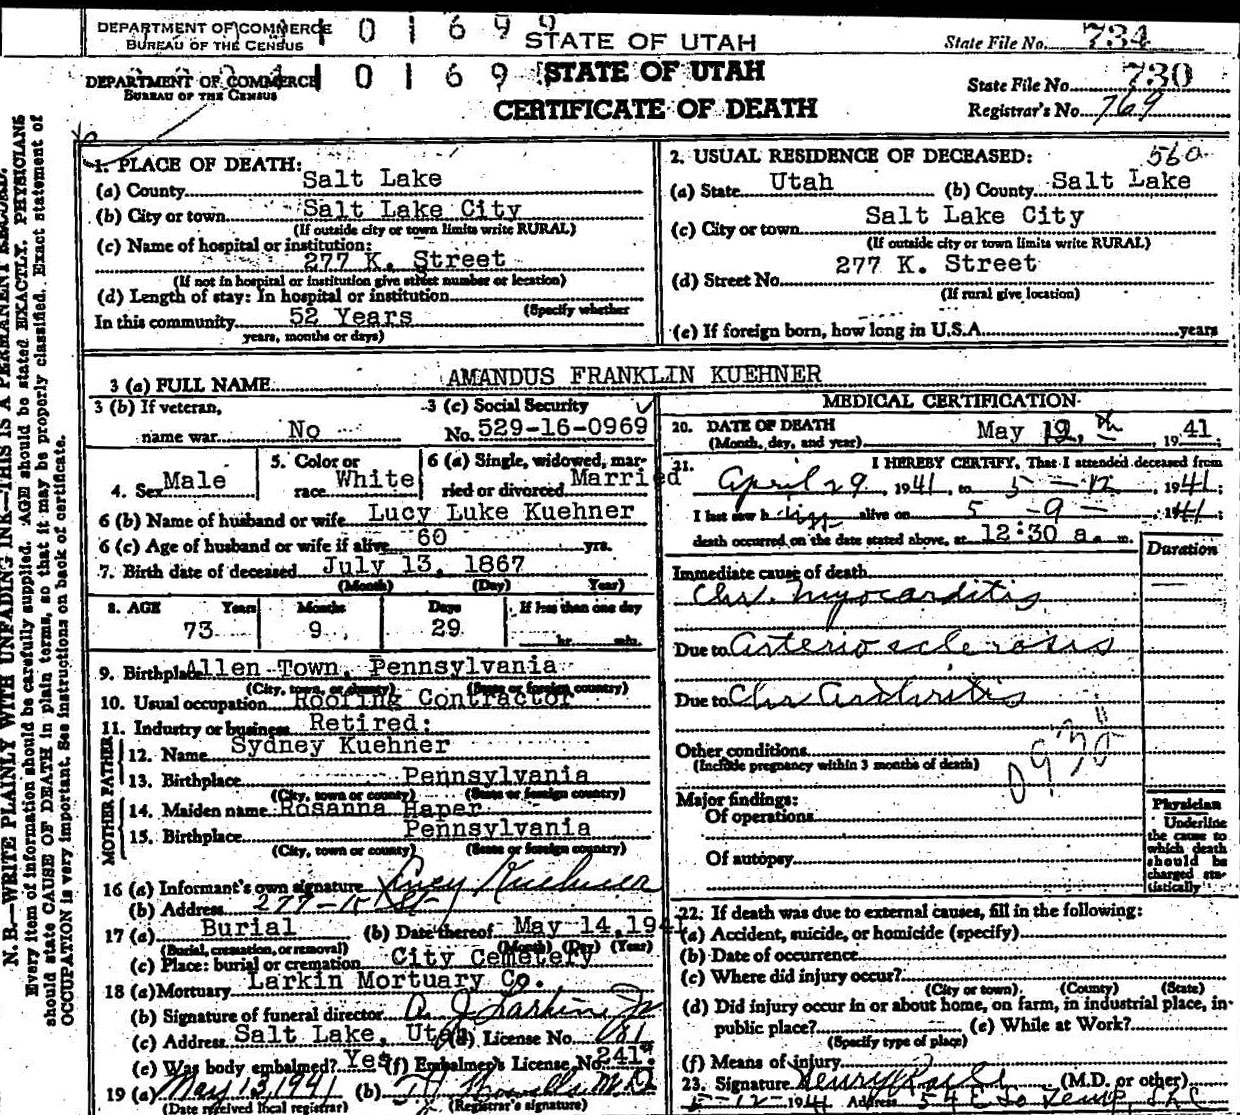 DEPARTMENT OF COMMERCE
BUREAU OF THE CENSUS
1 0 1 6 9 9
STATE OF UTAH
State File No. 734
DEPARTMENT OF COMMERCE
BUREAU OF THE CENSUS
1 0 1 6 9
STATE OF UTAH
CERTIFICATE OF DEATH
State File No. 730
Registrar's No. 769
N. B.—WRITE PLAINLY WITH UNFADING INK—THIS IS A PERMANENT RECORD.
Every item of information should be carefully supplied. AGE should be stated EXACTLY. PHYSICIANS
should state CAUSE OF DEATH in plain terms, so that it may be properly classified. Exact statement of
OCCUPATION is very important. See instructions on back of certificate.
1. PLACE OF DEATH:
(a) County Salt Lake
(b) City or town Salt Lake City
(If outside city or town limits write RURAL)
(c) Name of hospital or institution:
277 K. Street
(If not in hospital or institution give street number or location)
(d) Length of stay: In hospital or institution
(Specify whether
In this community 52 Years
years, months or days)
2. USUAL RESIDENCE OF DECEASED: 560
(a) State Utah (b) County Salt Lake
(c) City or town Salt Lake City
(If outside city or town limits write RURAL)
(d) Street No. 277 K. Street
(If rural give location)
(e) If foreign born, how long in U.S.A. years
3 (a) FULL NAME AMANDUS FRANKLIN KUEHNER
3 (b) If veteran,
name war No
3 (c) Social Security
No. 529-16-0969
4. Sex Male
5. Color or
race White
6 (a) Single, widowed, mar-
ried or divorced Married
6 (b) Name of husband or wife Lucy Luke Kuehner
6 (c) Age of husband or wife if alive 60 yrs.
7. Birth date of deceased July 13, 1867
(Month) (Day) Year)
8. AGE Years Months Days If less than one day
73 9 29 hr. min.
9. Birthplace Allen Town, Pennsylvania
(City, town, or county) (State or foreign country)
10. Usual occupation Roofing Contractor
11. Industry or business Retired:
FATHER
12. Name Sydney Kuehner
13. Birthplace Pennsylvania
(City, town or county) (State or foreign country)
MOTHER
14. Maiden name Rosanna Haper
15. Birthplace Pennsylvania
(City, town or county) (State or foreign country)
16 (a) Informant's own signature Lucy Kuehner
(b) Address 277-K St
17 (a) Burial (b) Date thereof May 14, 1941
(Burial, cremation, or removal) (Month) (Day) (Year)
(c) Place: burial or cremation City Cemetery
18 (a) Mortuary Larkin Mortuary Co.
(b) Signature of funeral director A J Larkin Jr
(c) Address Salt Lake, Utah (d) License No. 181
(e) Was body embalmed? Yes (f) Embalmer's License No. 241.
19 (a) May 13, 1941 (b) M.D.
(Date received local registrar) (Registrar's signature)
MEDICAL CERTIFICATION
20. DATE OF DEATH
(Month, day, and year) May 12, th 1941;
21. I HEREBY CERTIFY, That I attended deceased from
April 29, 1941, to 5-12, 1941;
I last saw him alive on 5-9-, 1941;
death occurred on the date stated above, at 12:30 a. m.
Duration
Immediate cause of death
Chr. Myocarditis
Due to Arteriosclerosis
Due to Chr Arthritis
Other conditions
(Include pregnancy within 3 months of death)
Major findings:
Of operations
Of autopsy
Physician
Underline
the cause to
which death
should be
charged sta-
tistically
22. If death was due to external causes, fill in the following:
(a) Accident, suicide, or homicide (specify)
(b) Date of occurrence
(c) Where did injury occur?
(City or town). (County) (State)
(d) Did injury occur in or about home, on farm, in industrial place, in
public place? (e) While at Work?
(Specify type of place)
(f) Means of injury
23. Signature Henry (M.D. or other)
5-12-1941 Address 54 E So Temp SLC